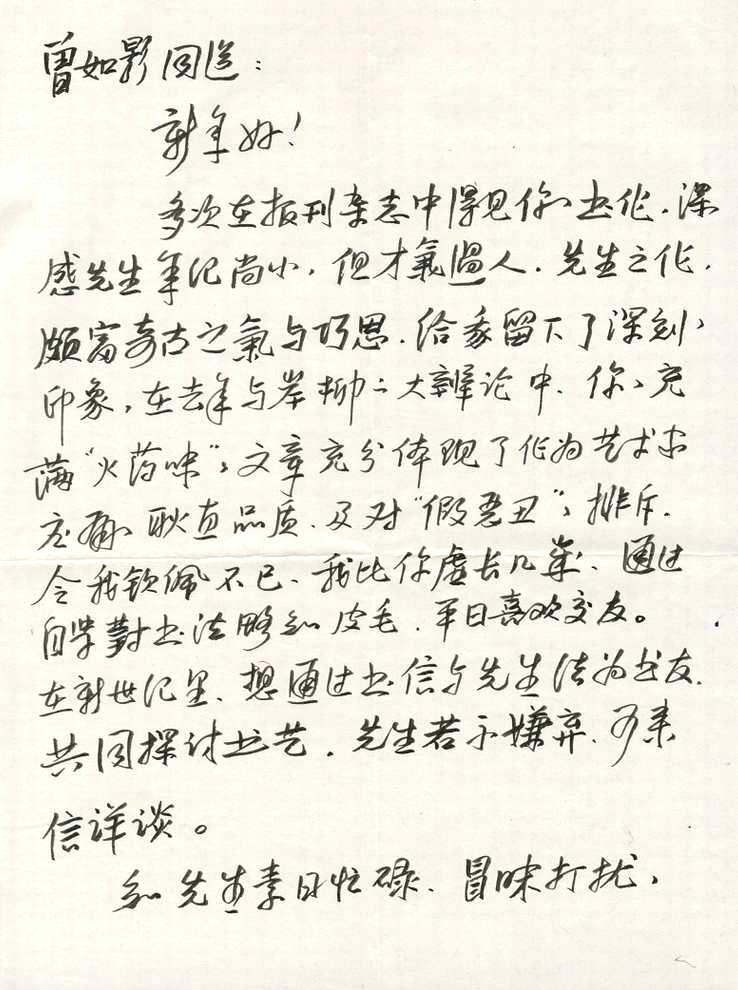 曾如影同道：
新年好！
多次在报刊杂志中得见你的书作，深
感先生年纪尚小，但才氣過人。先生之作，
颇富奇古之氣与巧思，给我留下了深刻的
印象，在去年与岑 之大辩论中，你的充
满“火药味”的文章充分体现了作为艺术家
应有的耿直品质，及对“假恶丑”的排斥，
令我钦佩不已，我比你虚长几歲，通过
自学對书法略知皮毛，平日喜欢交友。
在新世纪里，想通过书信与先生结为书友，
共同探讨书艺，先生若不嫌弃，可来
信详谈。
知先生素日忙碌，冒昧打扰，